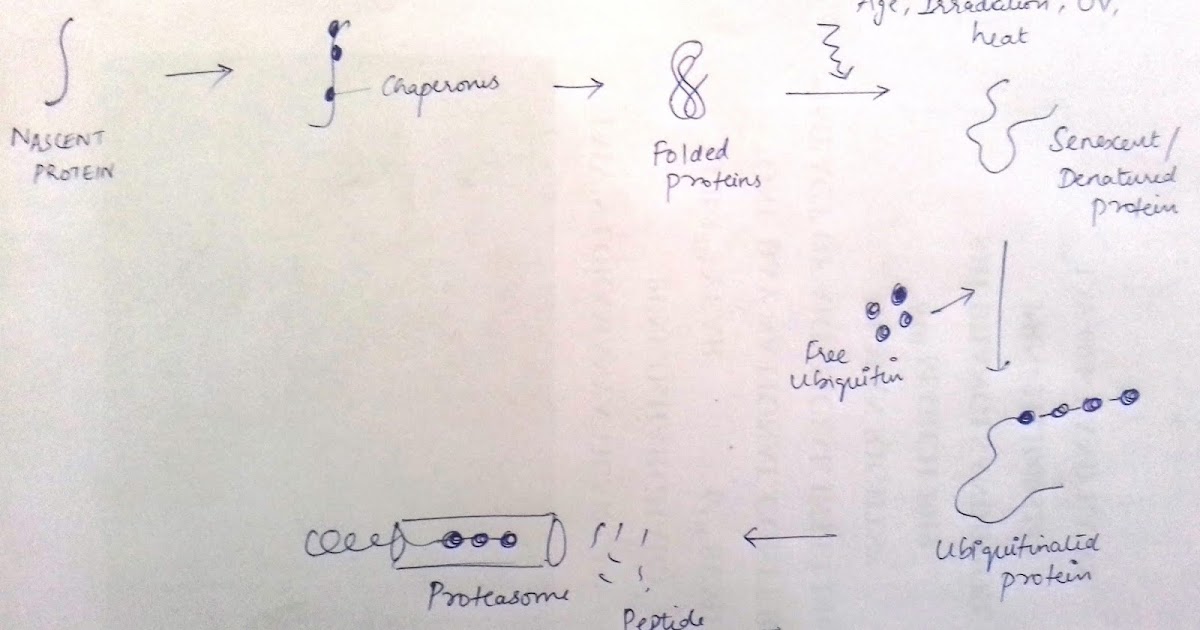 Age, Irradiation, UV,
heat
Chaperones
NASCENT
PROTEIN
Folded
proteins
Senescent/
Denatured
protein
Free
Ubiquitin
Ubiquitinated
protein
Proteasome
Peptide